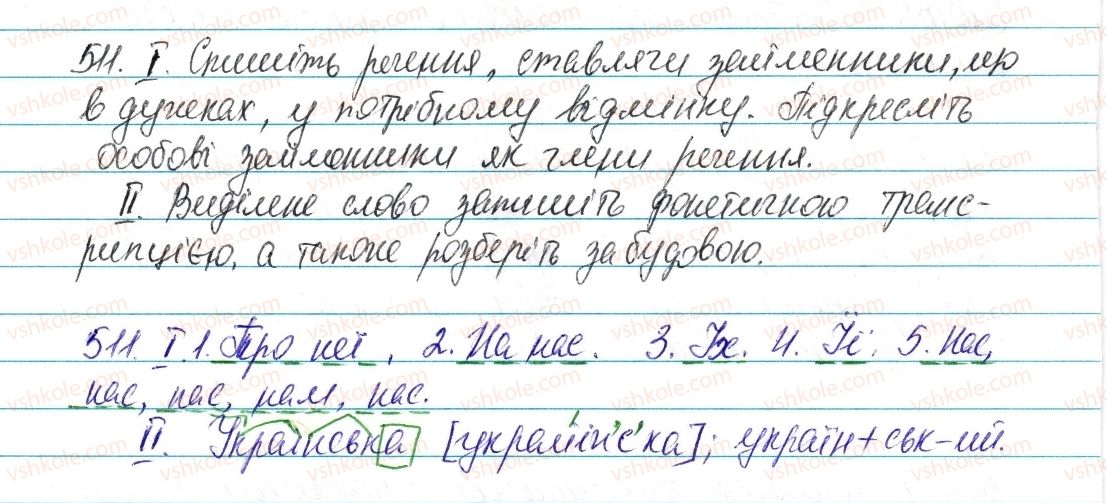 511. I. Спишіть речення, ставлячи займенники, що
в дужках, у потрібному відмінку. Підкресліть
особові займенники як члени речення.
II. Виділене слово запишіть фонетичною транс-
рипцією, а також розберіть за будовою.
511. I 1. Про неї, 2. На нас. 3. Їх. 4. Її. 5. Нас,
нас, нас, нам, нас.
II. Українська [украйін'с'ка]; україн+ськ-ий.